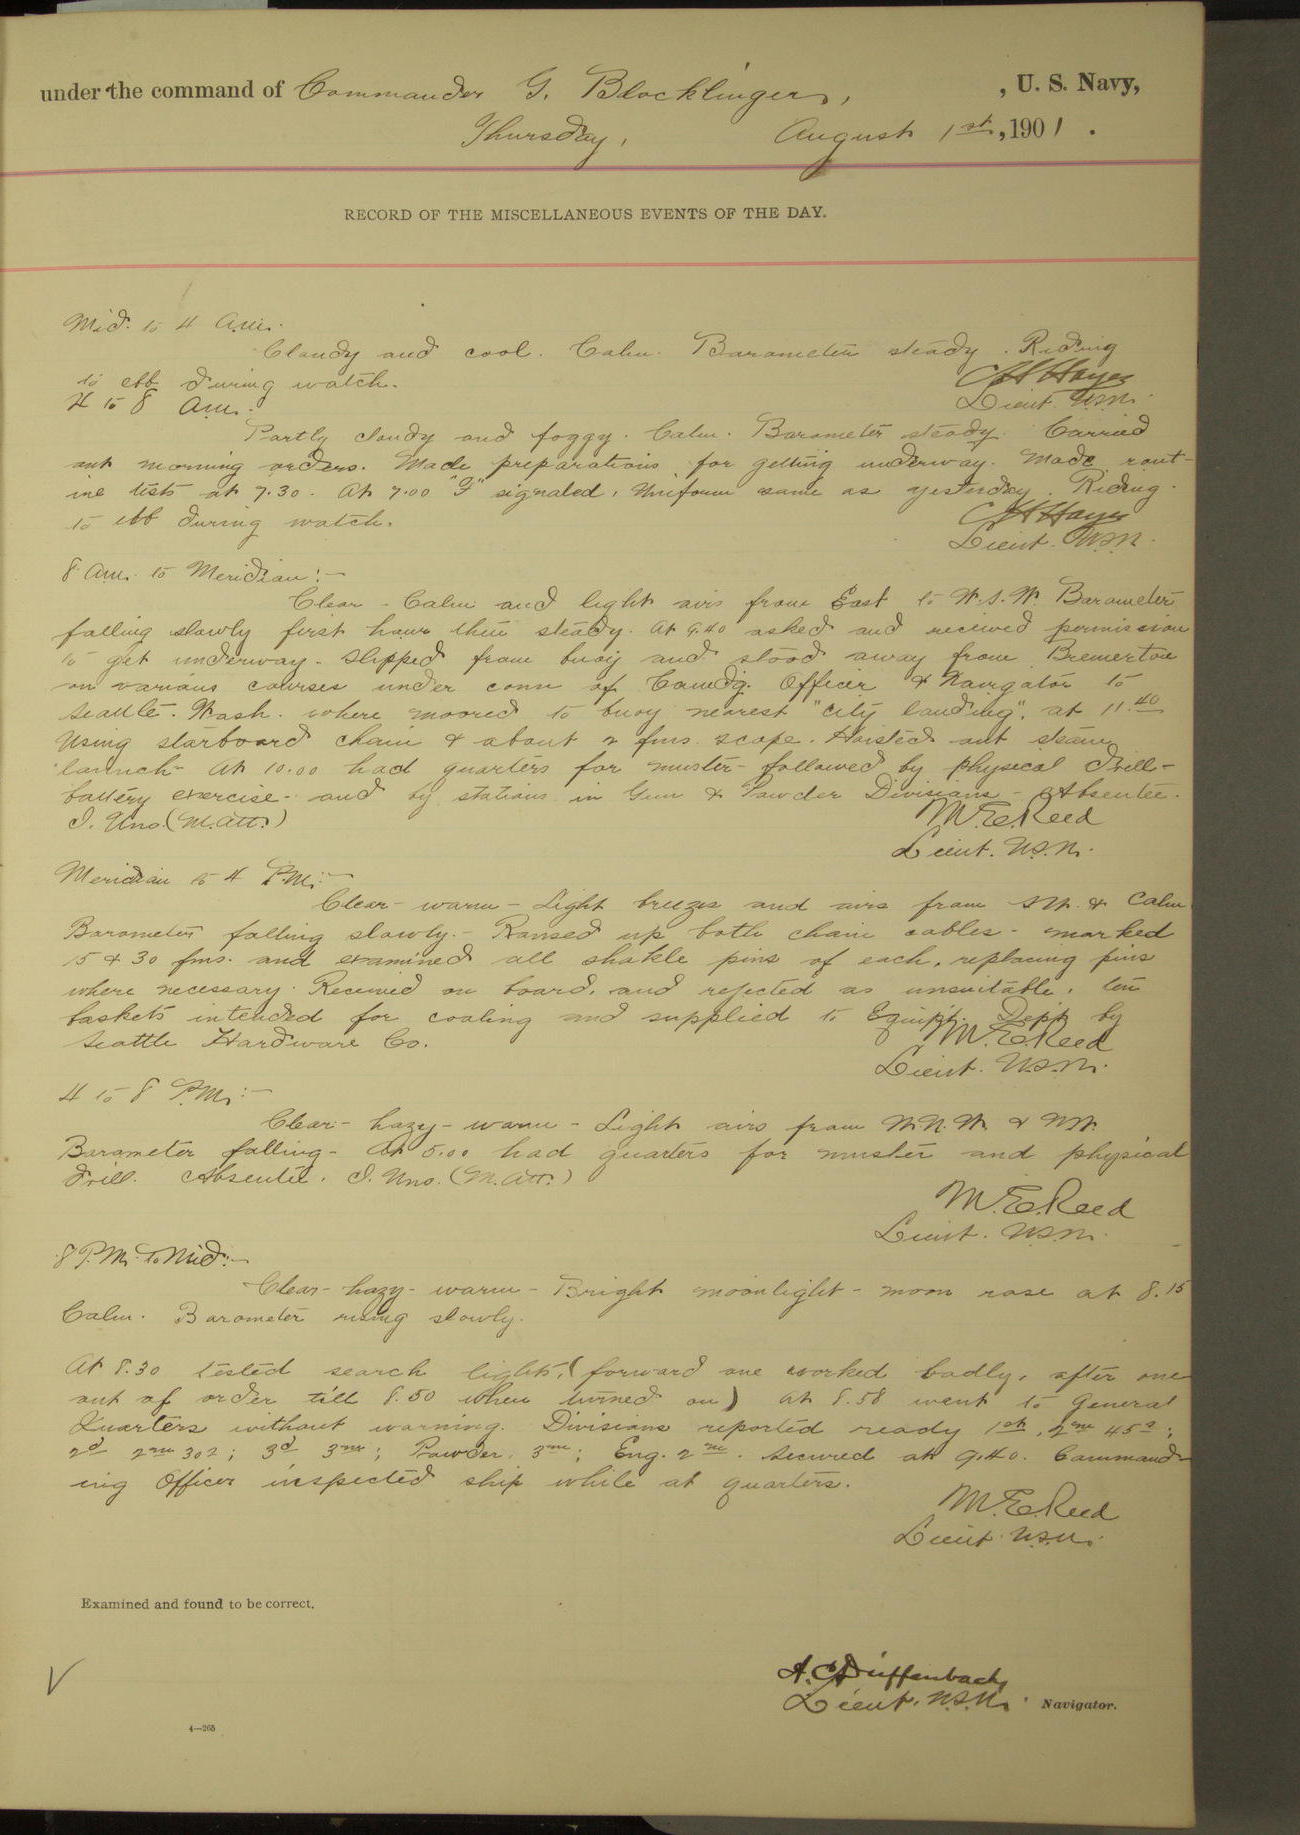 under the command of Commander G. Blocklinger, , U. S. Navy,
Thursday, August 1st, 1901.
RECORD OF THE MISCELLANEOUS EVENTS OF THE DAY.
Mid. to 4 a.m.
Cloudy and cool. Calm. Barometer steady. Riding
to ebb during watch.
C H Hayes
Lieut. U.S.N.
4 to 8 a.m.
Partly cloudy and foggy. Calm. Barometer steady. Carried
out morning orders. Made preparations for getting underway. Made rout-
ine tests at 7.30. At 7.00 "G" signaled, Uniform same as yesterday. Riding
to ebb during watch.
C H Hayes
Lieut. U.S.N.
8 a.m. to Meridian:-
Clear - Calm and light airs from East to W.S.W. Barometer
falling slowly first hour then steady. At 9.40 asked and received permission
to get underway - slipped from buoy and stood away from Bremerton
on various courses under conn of Comdg. Officer & Navigator to
Seattle. Wash. where moored to buoy nearest "City landing", at 11.40
Using starboard chain & about 2 fms scope. Hoisted out steam
launch - At 10.00 had quarters for muster - followed by physical drill -
battery exercise - and by stations in Gun & Powder Divisions - Absentee.
I. Uno. (M. Att.)
M.E. Reed
Lieut. U.S.N.
Meridian to 4 P.M.:-
Clear - warm - Light breezes and airs from SW. & Calm
Barometer falling slowly. - Roused up both chain cables - marked
15 & 30 fms. and examined all shakle pins of each, replacing pins
where necessary. Received on board, and rejected as unsuitable, ten
baskets intended for coaling and supplied to Equipt. Dept by
Seattle Hardware Co.
M.E. Reed
Lieut. U.S.N.
4 to 8 P.M.:-
Clear - hazy - warm - Light airs from W.N.W. & NW.
Barometer falling - At 5.00 had quarters for muster and physical
drill. Absentee. I. Uno. (M. Att.)
M.E. Reed
Lieut. U.S.N.
8 P.M. to Mid:-
Clear - hazy - warm - Bright moonlight - moon rose at 8.15
Calm. Barometer rising slowly.
At 8.30 tested search lights, (forward one worked badly, after one
out of order till 8.50 when turned on) At 8.58 went to General
Quarters without warning. Divisions reported ready 1st, 2m 45s;
2d 2m 30s; 3d 3m; Powder. 3m; Eng. 2m. Secured at 9.40. Command-
ing Officer inspected ship while at quarters.
M.E. Reed
Lieut. U.S.N.
Examined and found to be correct.
A. C. Dieffenbach,
Lieut. U.S.N. Navigator.
4—265